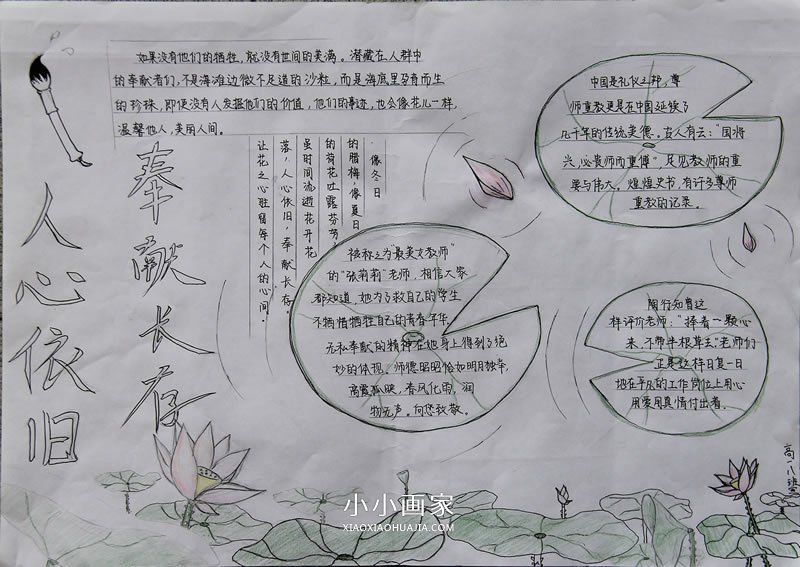 如果没有他们的牺牲，就没有世间的美满。潜藏在人群中
的奉献者们，不是海滩边微不足道的沙粒，而是海底里孕育而生
的珍珠，即便没有人发掘他们的价值，他们的事迹，也会像花儿一样，
温馨他人，美丽人间。
奉献长存
人心依旧
像冬日
的腊梅，像夏日
的荷花吐露芬芳，
虽时间流逝花开花
落，人心依旧，奉献长存。
让花之心驻留每个人的心间。
中国是礼仪之邦，尊
师重教更是在中国延续了
几千年的传统美德。古人有云："国将
兴，必贵师而重傅"，足见教师的重
要与伟大，煌煌史书，有许多尊师
重教的记录。
被称之为"最美女教师"
的"张莉莉"老师，相信大家
都知道，她为了救自己的学生
不惜牺牲自己的青春年华，
无私奉献的精神在她身上得到了绝
妙的体现，师德昭昭恰如明月独幸，
高霞孤映，春风化雨，润
物无声。向您致敬。
陶行知曾这
样评价老师："捧着一颗心
来，不带半根草去"老师们
正是这样日复一日
地在平凡的工作岗位上用心
用爱用真情付出着。
高一八班
小小画家
XIAOXIAOHUAJIA.COM